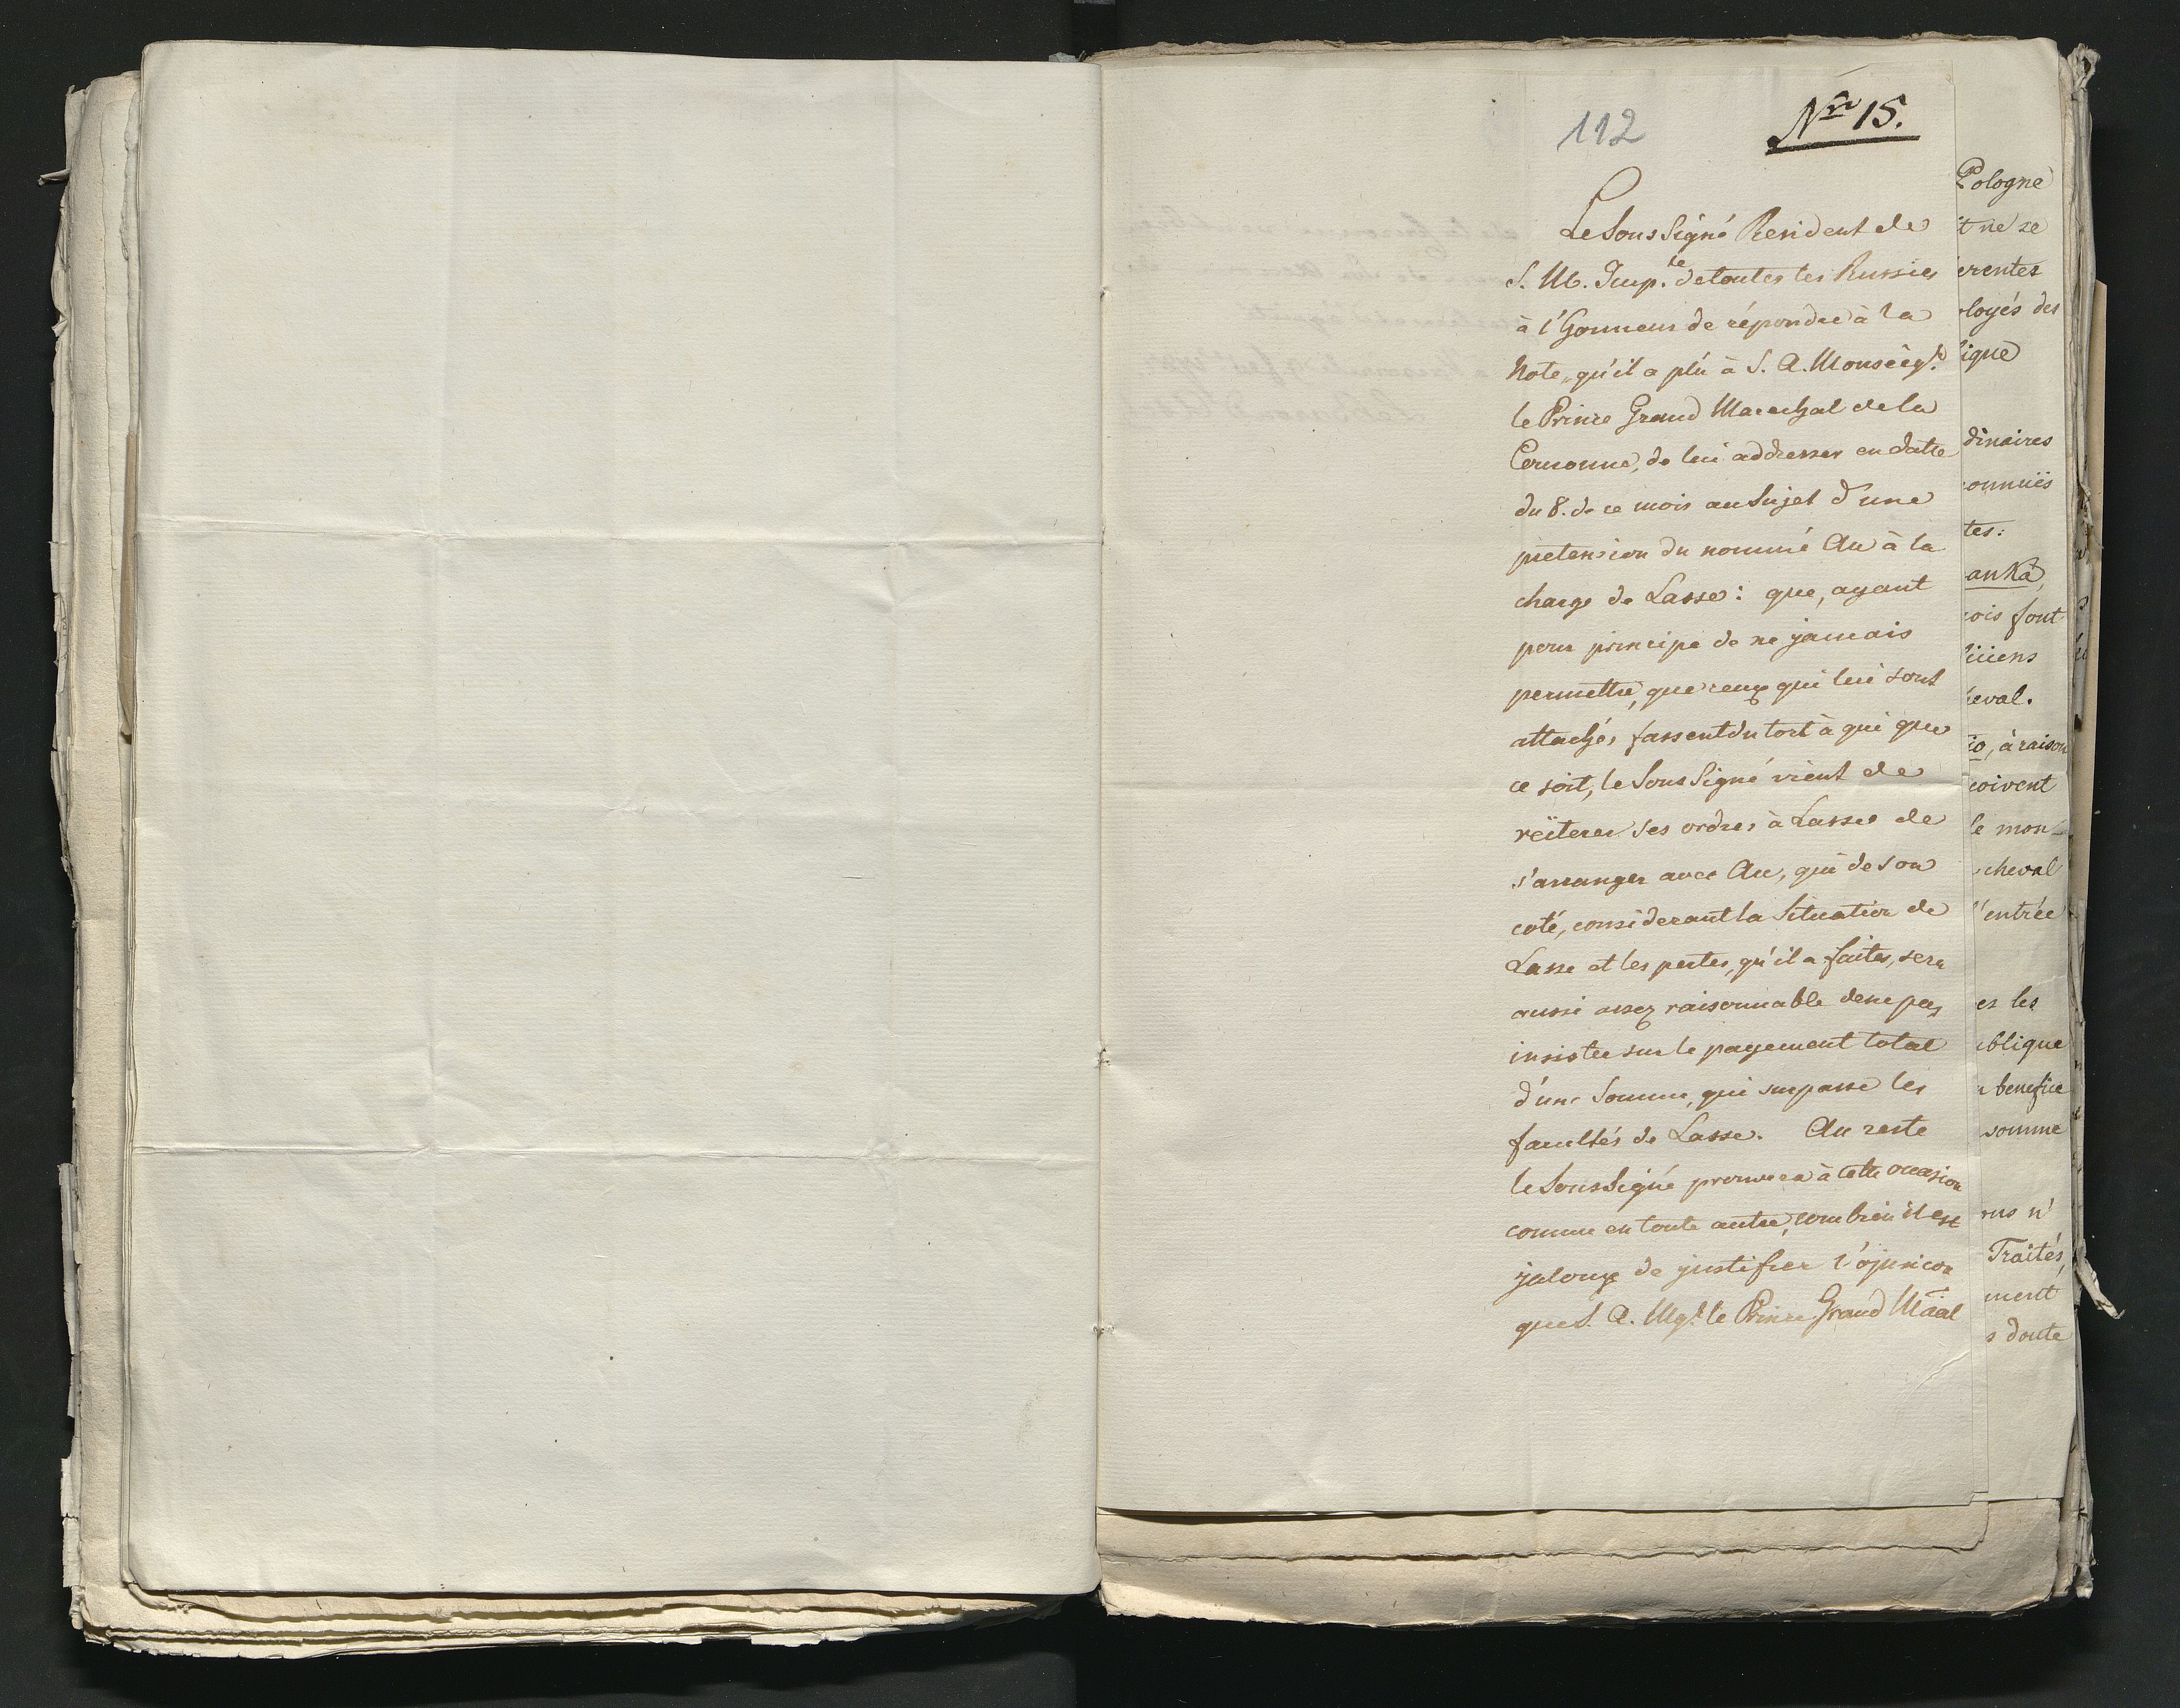 112
Nro 15.
Le Sous Signé Resident de
S. M. Imp.le de toutes les Russies
à l'honneur de répondre à la
Note, qu'il a plû à S. A. Monseigr.
le Prince Grand Marechal de la
Couronne, de lui addresser en datte
du 8. de ce mois au Sujet d'une
pretension du nommé Au à la
charge de Lasse: que, ayant
pour principe de ne jamais
permettre, que ceux qui lui sont
attachés fassent du tort à qui que
ce soit, le Sous Signé vient de
reïterer ses ordres à Lasse de
s'arranger avec Au, qui de son
coté, considerant la Situation de
Lasse et les pertes, qu'il a faites, sera
aussi assez raisonnable de ne pas
insister sur le payement total
d'une Somme, qui surpasse les
facultés de Lasse. Au reste
le Sous Signé prouvera à cette occasion
comme en toute autre, combien il est
jaloux de justifier l'opinion
que S. A. Mgr. le Prince Grand Maal
Pologne
t ne se
erentes
loyés des
ique
dinaires
onnuës
tes:
anka,
ois font
iiiens
eval.
io, à raison
oivent
le mon-
cheval
l'entrée
es les
blique
benefice
somme
rus n'
Traités,
ment
s doute